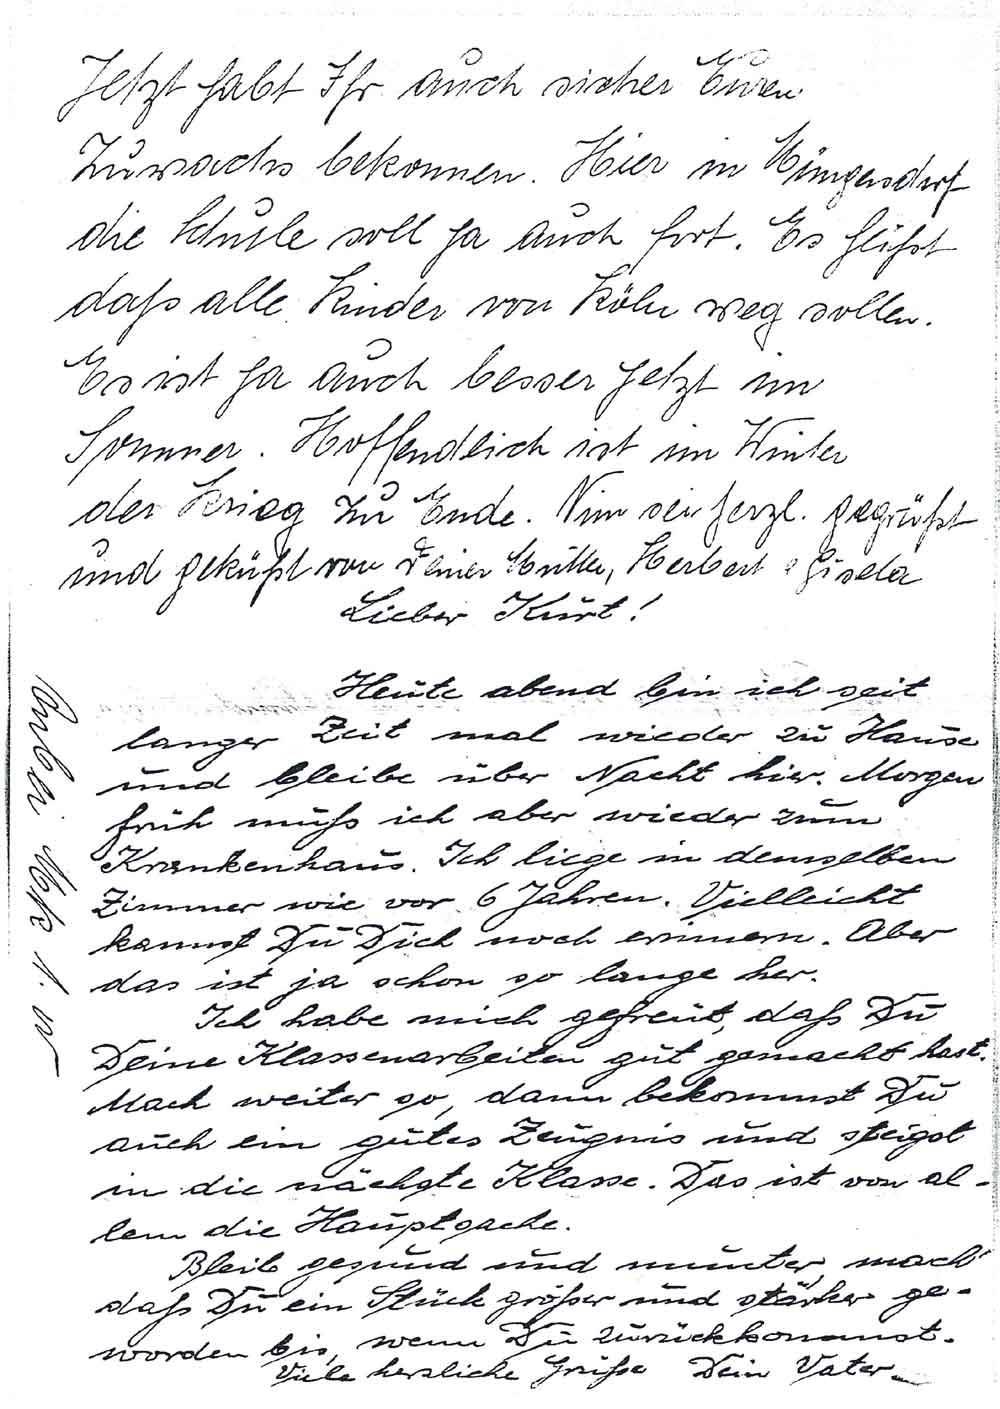 Jetzt habt Ihr auch sicher Euren
Zuwachs bekonnen. Hier in Müngersdorf
die Schule soll ja auch fort. Es heißt
daß alle Kinder von Köln weg sollen.
Es ist ja auch besser jetzt im
Sommer. Hoffendlich ist im Winter
der Krieg zu Ende. Nun sei herzl. gegrüßt
und geküßt von Deiner Mutter, Herbert & Gisela
Lieber Kurt!
Heute abend bin ich seit
langer Zeit mal wieder zu Hause
und bleibe über Nacht hier. Morgen
früh muß ich aber wieder zum
Krankenhaus. Ich liege in demselben
Zimmer wie vor 6 Jahren. Vielleicht
kannst Du Dich noch erinnern. Aber
das ist ja schon so lange her.
Ich habe mich gefreut, daß Du
Deine Klassenarbeiten gut gemacht hast.
Mach weiter so, dann bekommst Du
auch ein gutes Zeugnis und steigst
in die nächste Klasse. Das ist vor al-
lem die Hauptsache.
Bleib gesund und munter, mach'
daß Du ein Stück größer und stärker ge-
worden bis, wenn Du zurückkommst.
Viele herzliche Grüße Dein Vater
Anbei Mk 1.